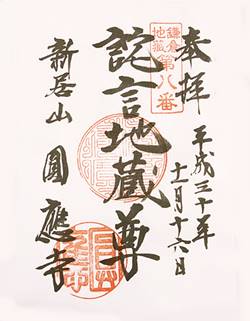 奉拝
平成三十年
十一月十六日
鎌倉
地蔵
第八番
詫言地蔵尊
新居山
圓應寺